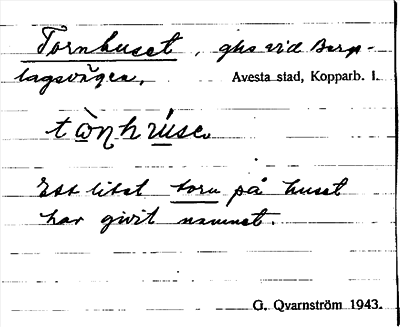 Tornhuset, ghs vid Bergs-
lagsvägen,
Avesta stad, Kopparb. l.
tὼɳhr​úse
Ett litet torn på huset
har givit namnet.
G. Qvarnström 1943.